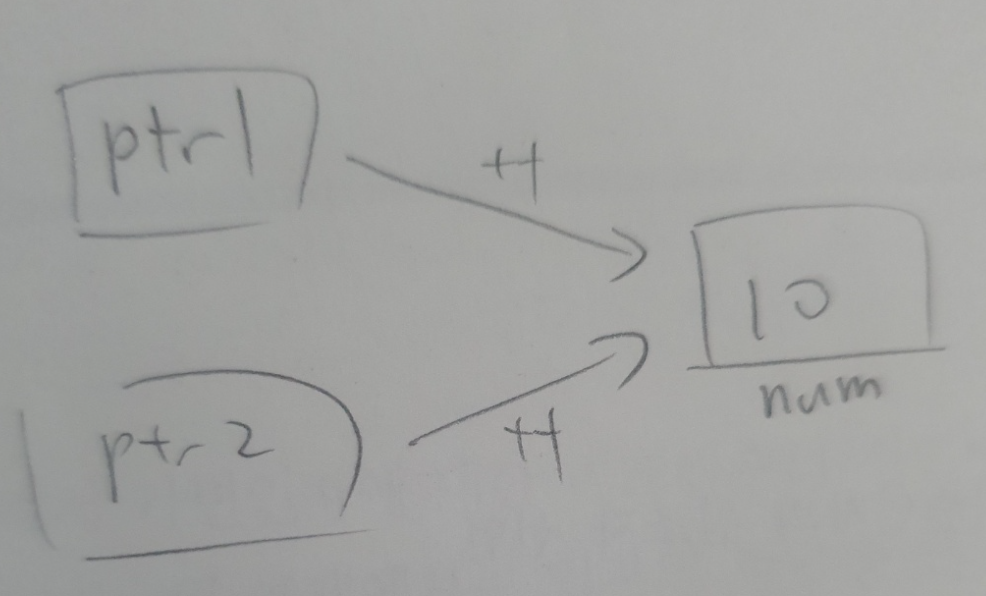 ptr1
++
10
num
ptr2
++